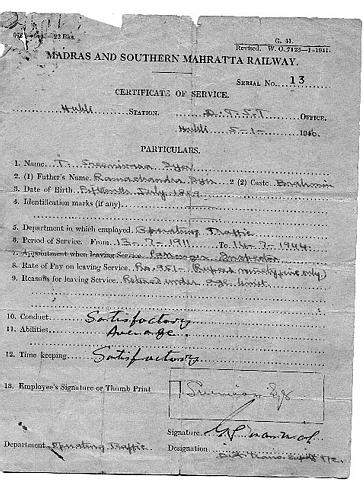 G. 41.
Revised. W. O. 7125—1-1941.
MADRAS AND SOUTHERN MAHRATTA RAILWAY.
SERIAL NO. 13
CERTIFICATE OF SERVICE.
Hubli STATION. D.T.S.'s OFFICE.
Hubli 5-1- 1946.
PARTICULARS.
1. Name T. Sreenivasa Iyer
2. (1) Father's Name. Ramachandra Iyer 2 (2) Caste Brahmin
3. Date of Birth. Fifteenth July 1889
4. Identification marks (if any).
5. Department in which employed. Operating Traffic
6. Period of Service. From 13-7-1911 To 14-7-1944
7. Appointment when leaving Service Passenger Inspector
8. Rate of Pay on leaving Service Rs. 95/- (Rupees ninety five only)
9. Reasons for leaving Service. Retired under age limit
10. Conduct. Satisfactory
11. Abilities. Average.
12. Time keeping. Satisfactory
13. Employee's Signature or Thumb Print
Signature.
Department. Operating Traffic Designation